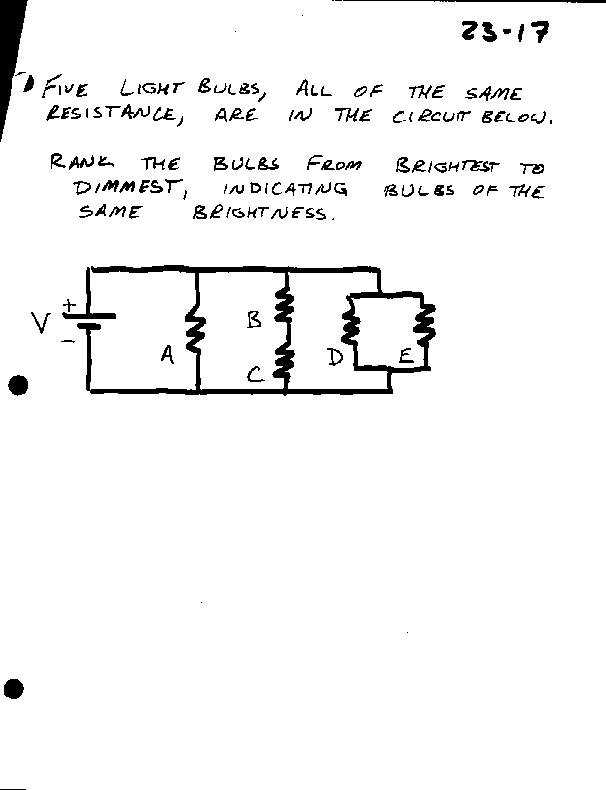 23-17
FIVE LIGHT BULBS, ALL OF THE SAME
RESISTANCE, ARE IN THE CIRCUIT BELOW.
RANK THE BULBS FROM BRIGHTEST TO
DIMMEST, INDICATING BULBS OF THE
SAME BRIGHTNESS.
+
V
-
A
B
C
D
E